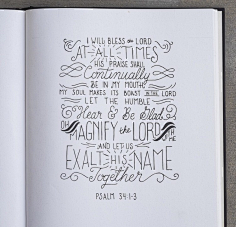 I WILL BLESS the LORD
AT ALL TIMES
HIS PRAISE SHALL
Continually
BE IN MY MOUTH
MY SOUL MAKES ITS BOAST IN THE LORD
LET THE HUMBLE
Hear & Be Glad
OH MAGNIFY the LORD WITH ME
AND LET US
EXALT HIS NAME
Together
PSALM 34:1-3